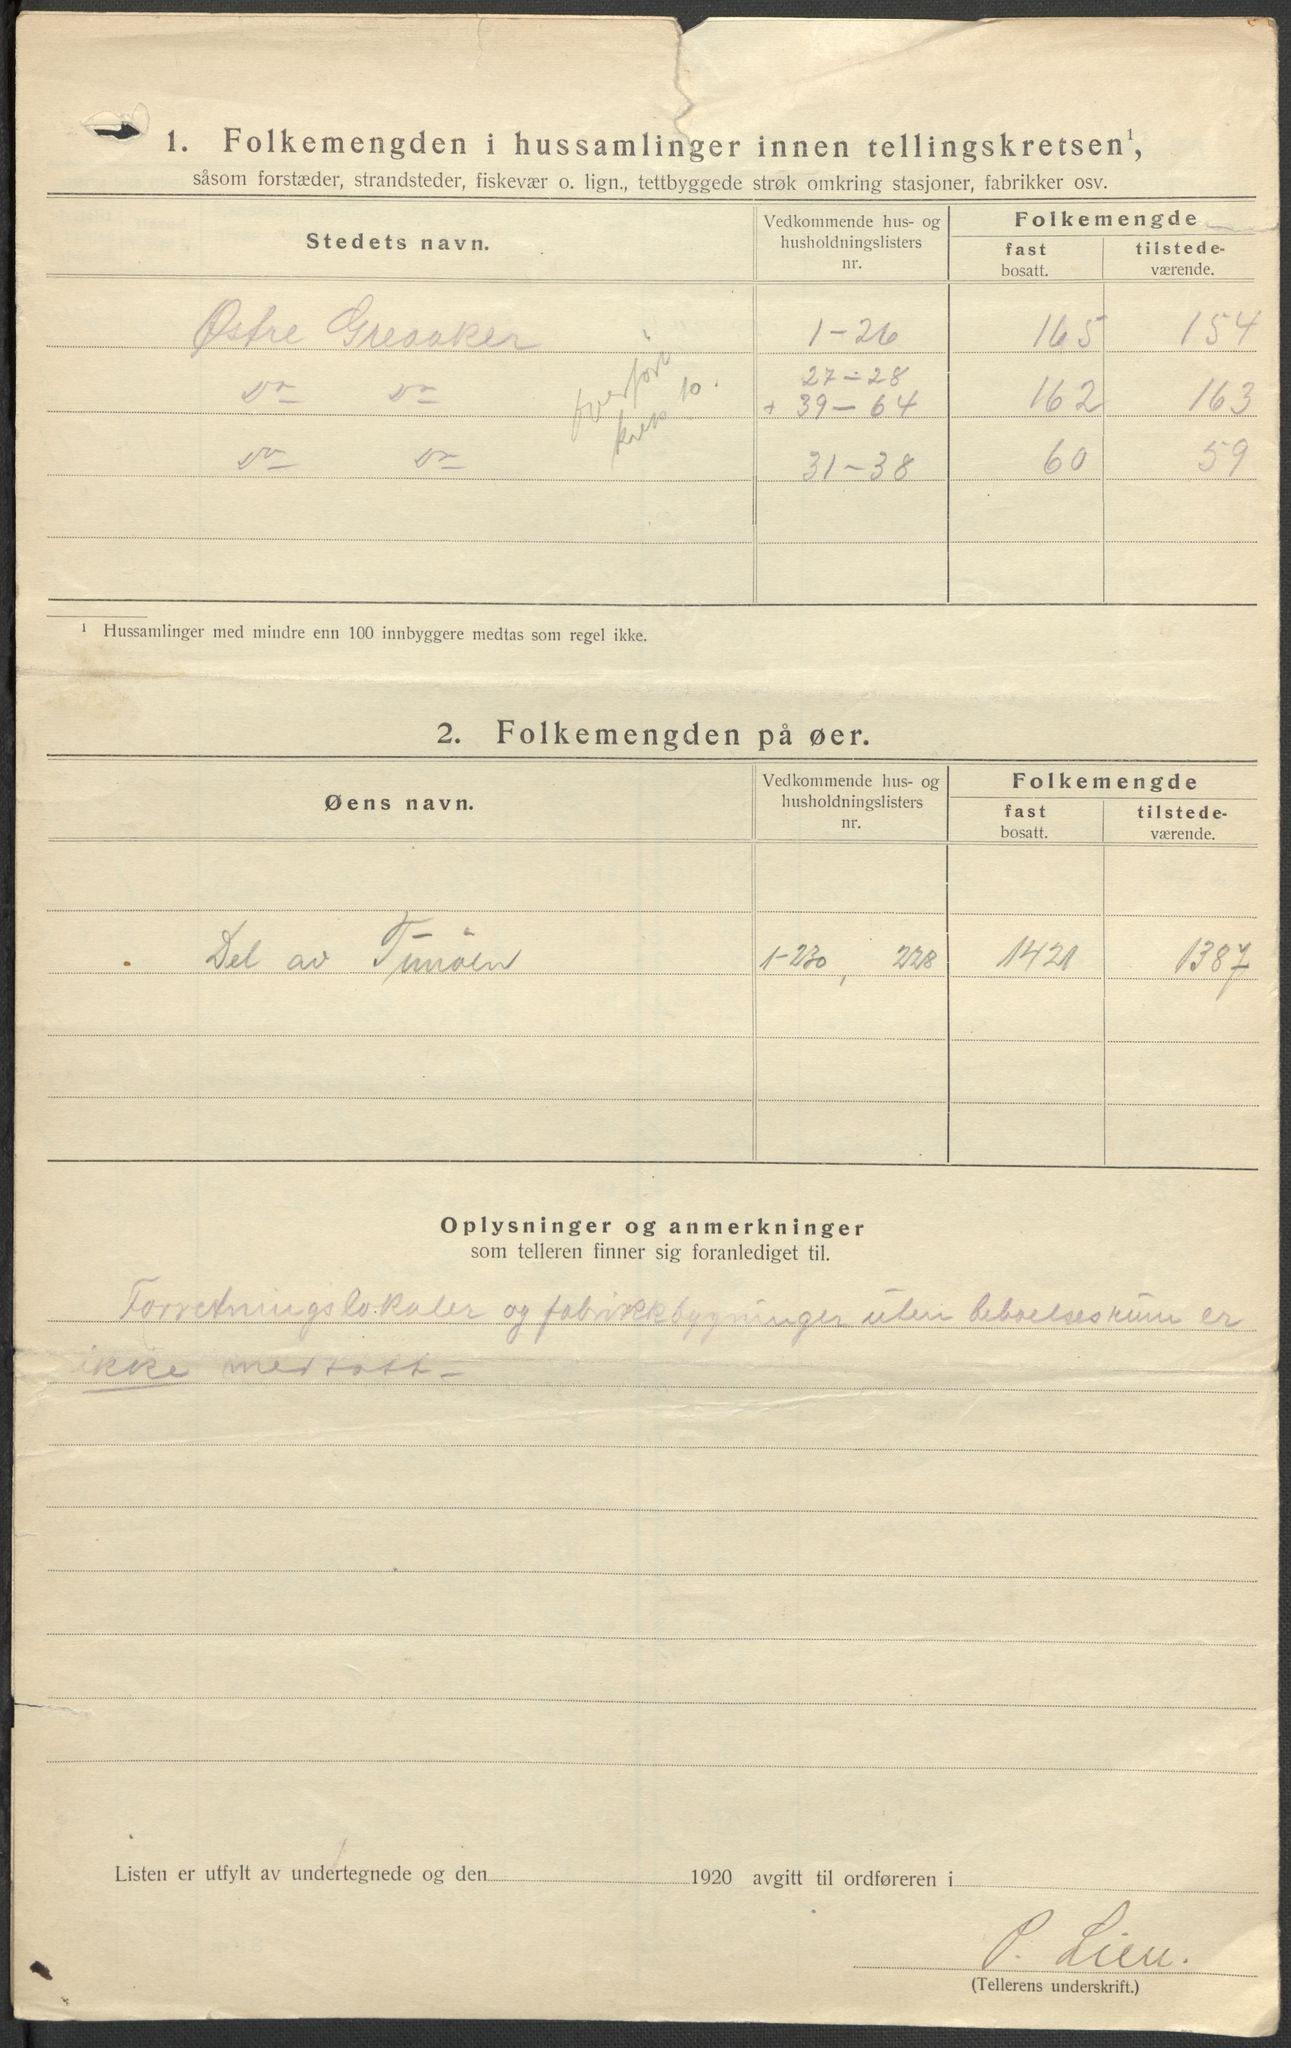 1. Folkemengden i hussamlinger innen tellingskretsen¹,
såsom forstæder, strandsteder, fiskevær o. lign., tettbyggede strøk omkring stasjoner, fabrikker osv.
Stedets navn.
Vedkommende hus- og
husholdningslisters
nr.
Folkemengde
fast
bosatt.
tilstede-
værende.
Østre Greaaker 1-26 165 154
27-28
Do Do + 39-64 162 163
overført
krets 10.
Do Do 31-38 60 59
¹ Hussamlinger med mindre enn 100 innbyggere medtas som regel ikke.
2. Folkemengden på øer.
Øens navn.
Vedkommende hus- og
husholdningslisters
nr.
Folkemengde
fast
bosatt.
tilstede-
værende.
Del av Tunöen 1-230, 228 1421 1387
Oplysninger og anmerkninger
som telleren finner sig foranlediget til.
Forretningslokaler og fabrikkbygninger uten beboelsesrum er
ikke medtatt-
Listen er utfylt av undertegnede og den 1920 avgitt til ordføreren i
P. Lien.
(Tellerens underskrift.)